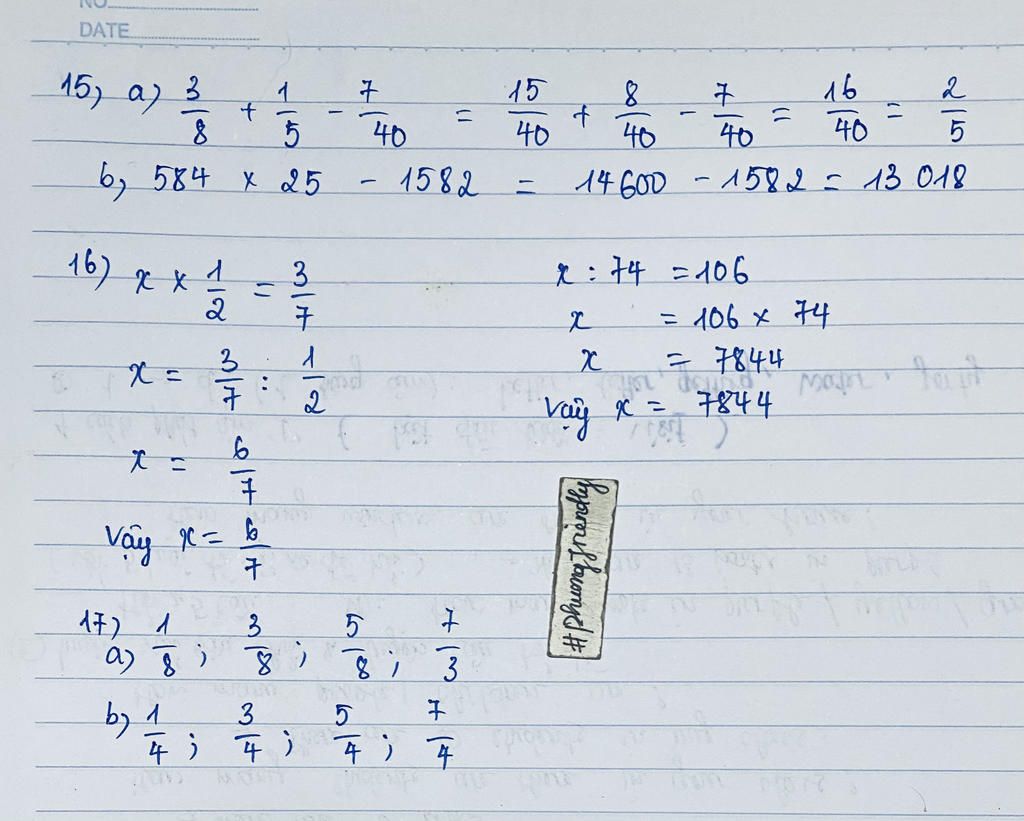 NO
DATE
15, a) 3/8 + 1/5 - 7/40 = 15/40 + 8/40 - 7/40 = 16/40 = 2/5
b, 584 × 25 - 1582 = 14600 - 1582 = 13 018
16) x × 1/2 = 3/7
x = 3/7 : 1/2
x = 6/7
Vậy x = 6/7
x : 74 = 106
x = 106 × 74
x = 7844
Vậy x = 7844
#phuongfriendly
17)
a) 1/8 ; 3/8 ; 5/8 , 7/3
b) 1/4 ; 3/4 ; 5/4 ; 7/4